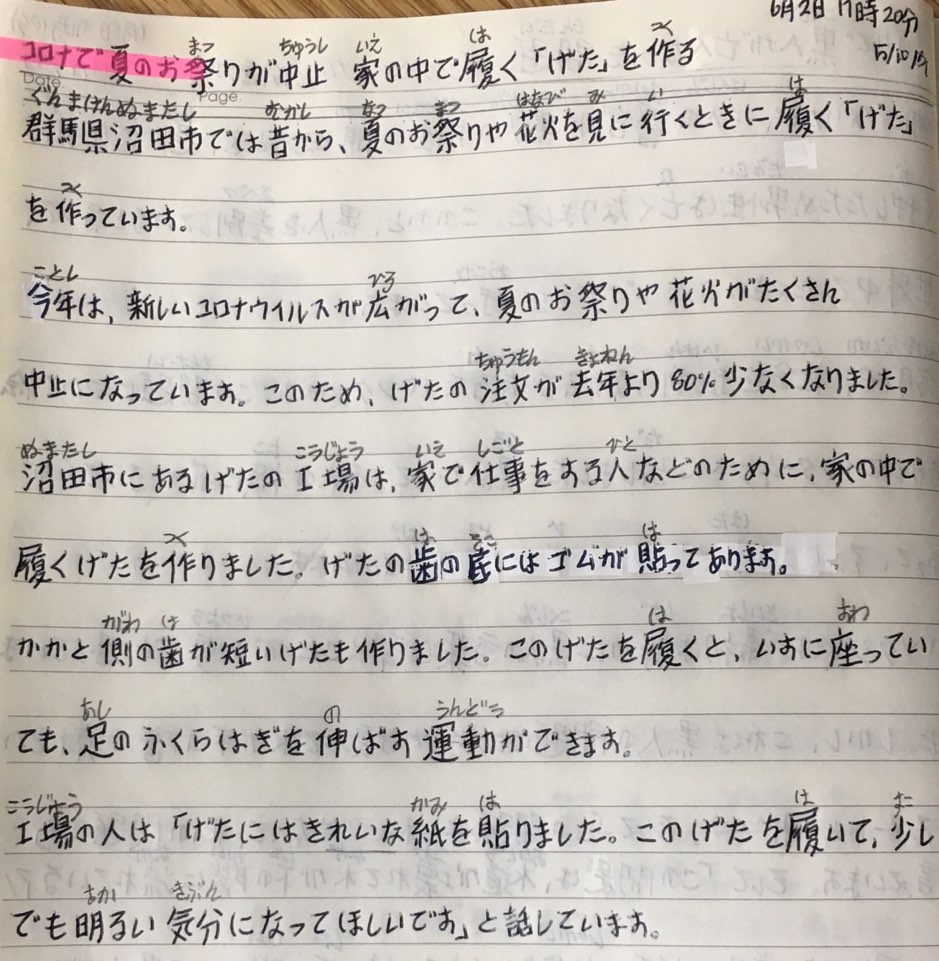 6月2日 17時20分
コロナで夏のお祭りが中止 家の中で履く「げた」を作る
Date
Page.
群馬県沼田市では昔から、夏のお祭りや花火を見に行くときに履く「げた」
を作っています。
今年は、新しいコロナウイルスが広がって、夏のお祭りや花火がたくさん
中止になっています。このため、げたの注文が去年より80%少なくなりました。
沼田市にあるげたの工場は、家で仕事をする人などのために、家の中で
履くげたを作りました。げたの歯の底にはゴムが貼ってあります。
かかと側の歯が短いげたも作りました。このげたを履くと、いすに座ってい
ても、足のふくらはぎを伸ばす運動ができます。
工場の人は「げたにはきれいな紙を貼りました。このげたを履いて、少し
でも明るい気分になってほしいです」と話しています。